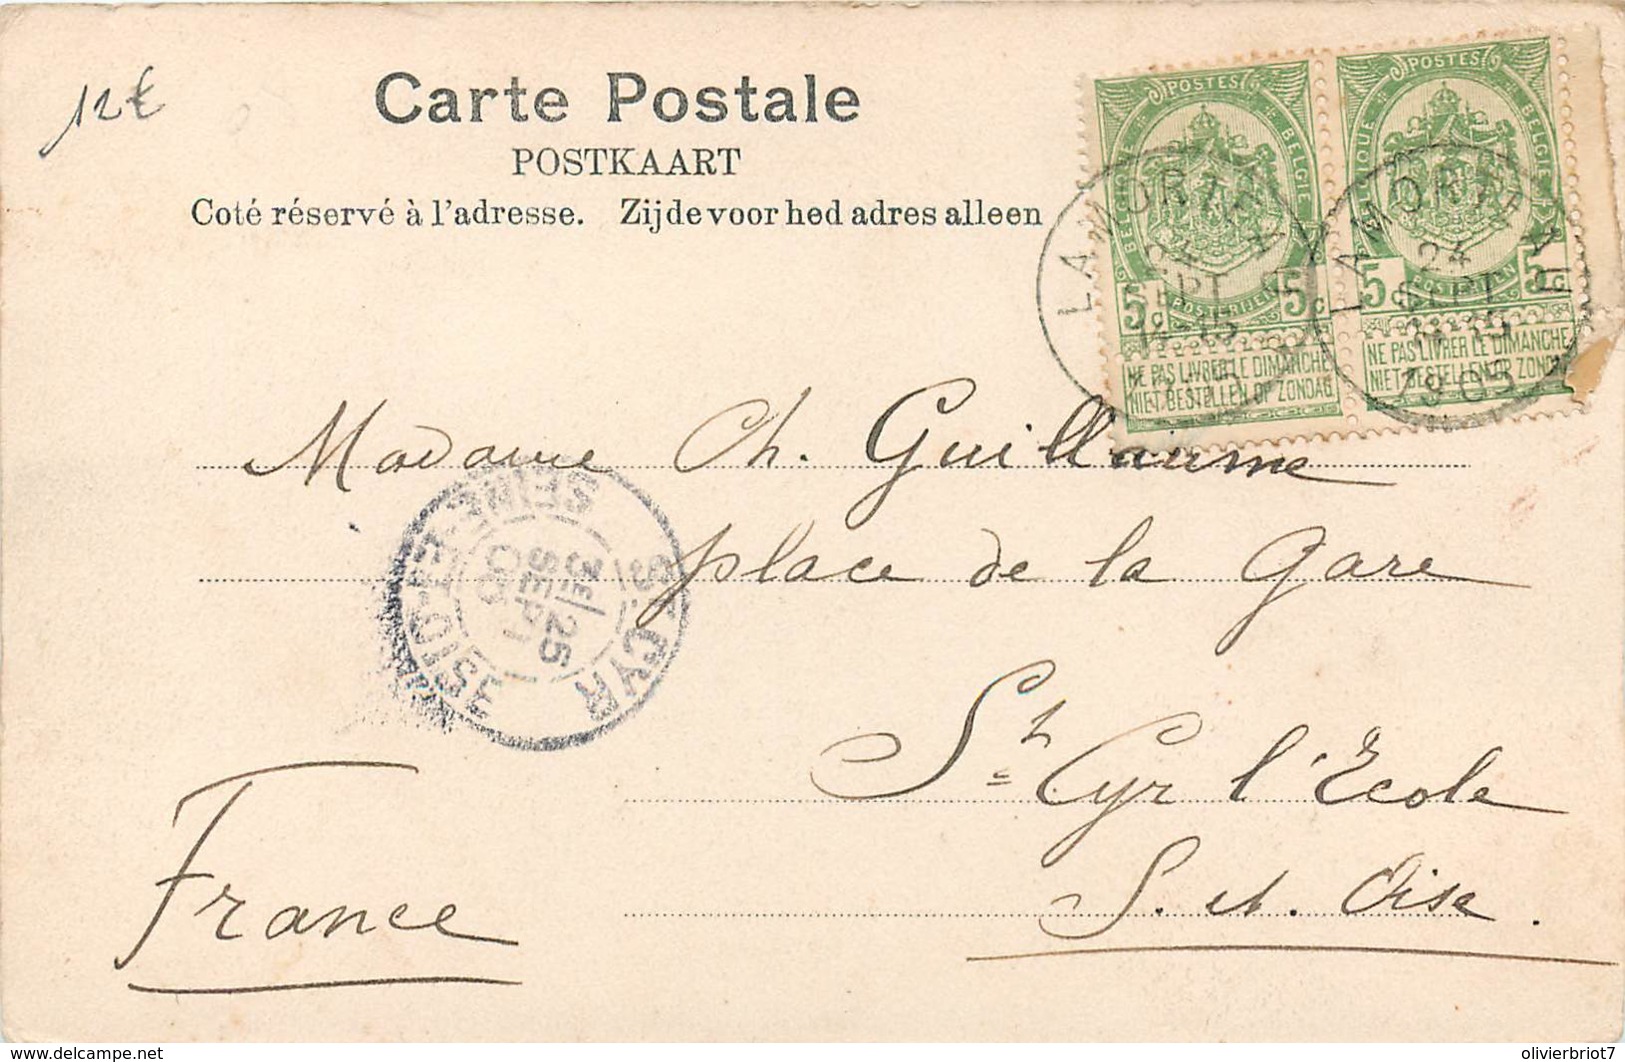 12€
Carte Postale
POSTKAART
Coté réservé à l'adresse. Zijde voor hed adres alleen
POSTES
BELGIQUE
BELGIE
5c 5c
POSTERIJEN
NE PAS LIVRER LE DIMANCHE
NIET BESTELLEN OP ZONDAG
POSTES
BELGIQUE
BELGIE
5c 5c
POSTERIJEN
NE PAS LIVRER LE DIMANCHE
NIET BESTELLEN OP ZONDAG
LAMORTEAU
24
SEPT
LAMORTEAU
24
SEPT
1905
Madame Ch. Guillaume
place de la Gare
St Cyr l'Ecole
S. et. Oise.
France
ST CYR
SEINE-ET-OISE
3E/25
SEPT
05
www.delcampe.net
olivierbriot7